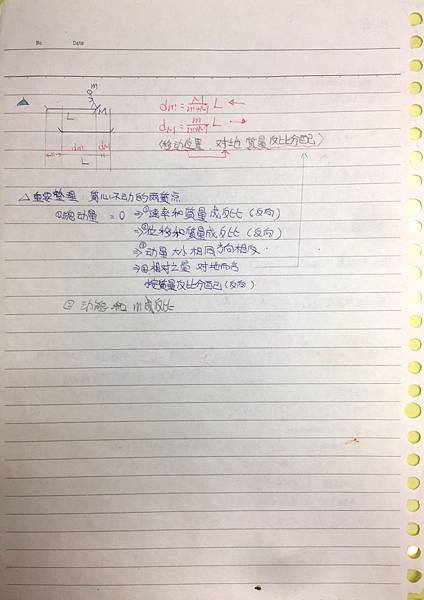 No. Date
m
M
L
dm dM
L
dm = M/m+M L ←
dM = m/m+M L →
(移動位置 對地 質量反比分配)
△ 重要整理 質心不動的兩質点
①總動量 = 0 ⇒ ①速率和質量成反比 (反向)
⇒ ②位移和質量成反比 (反向)
⇒ ③動量大小相同方向相反.
⇒ ④相對之量 對地而言
按質量反比分配 (反向)
② 動能和 m 成反比